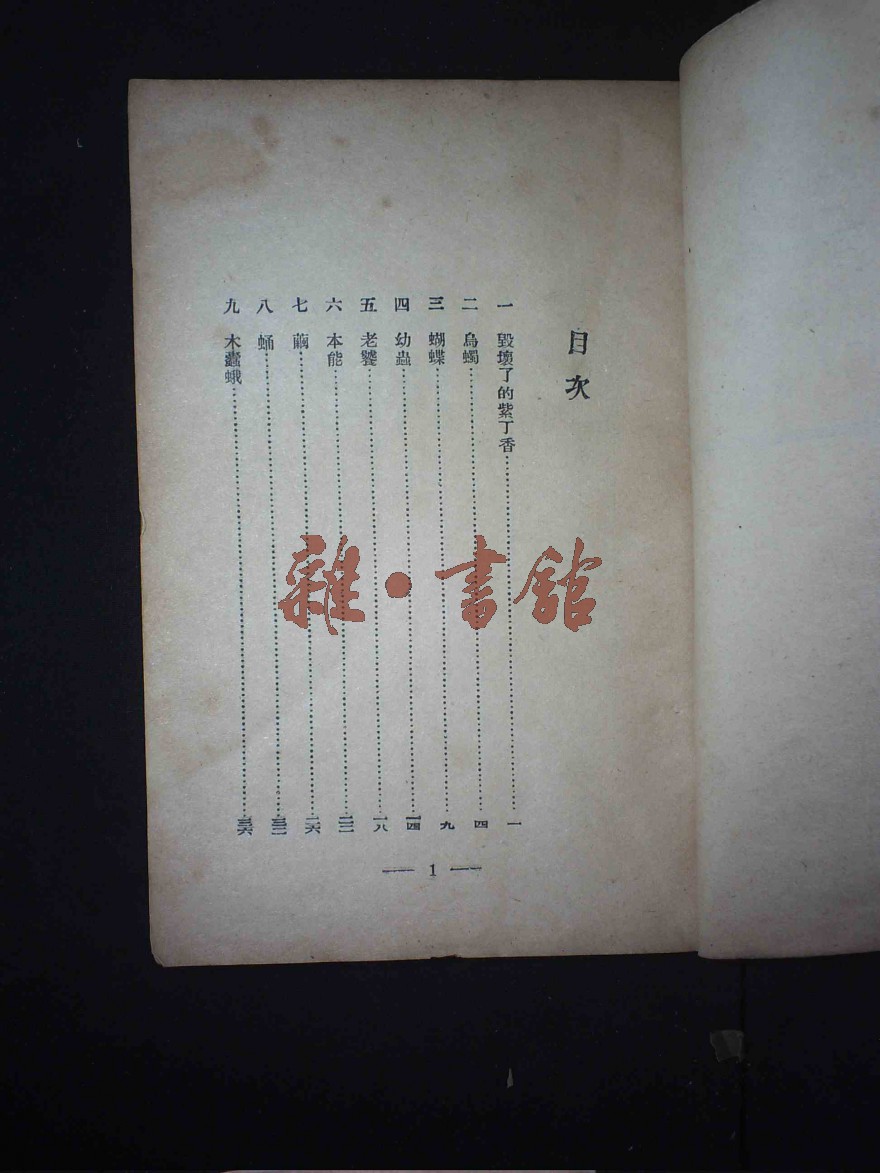 目次
一 毀壞了的紫丁香 一
二 烏蠋 四
三 蝴蝶 九
四 幼蟲 一四
五 老饕 一八
六 本能
七 繭 二六
八 蛹
九 木蠹蛾 三六
— 1 —
雜·書舘